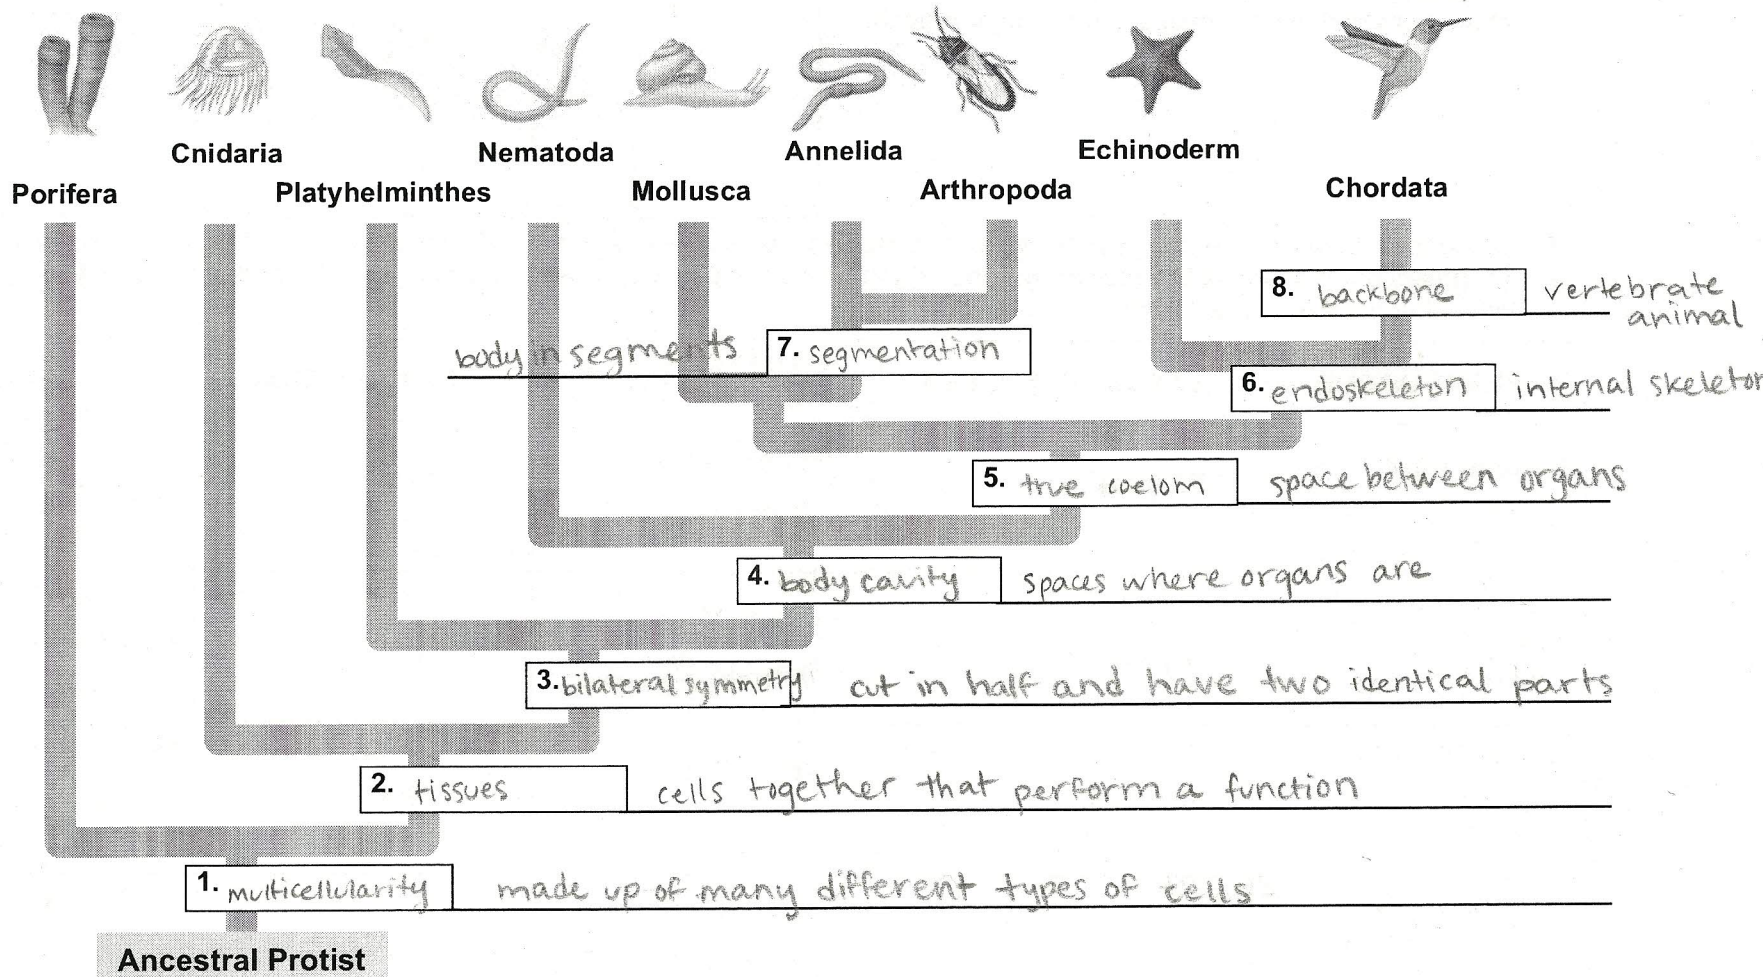 Cnidaria Nematoda Annelida Echinoderm
Porifera Platyhelminthes Mollusca Arthropoda Chordata
8. backbone vertebrate
animal
body in segments 7. segmentation
6. endoskeleton internal skeleton
5. true coelom space between organs
4. body cavity spaces where organs are
3. bilateral symmetry cut in half and have two identical parts
2. tissues cells together that perform a function
1. multicellularity made up of many different types of cells
Ancestral Protist